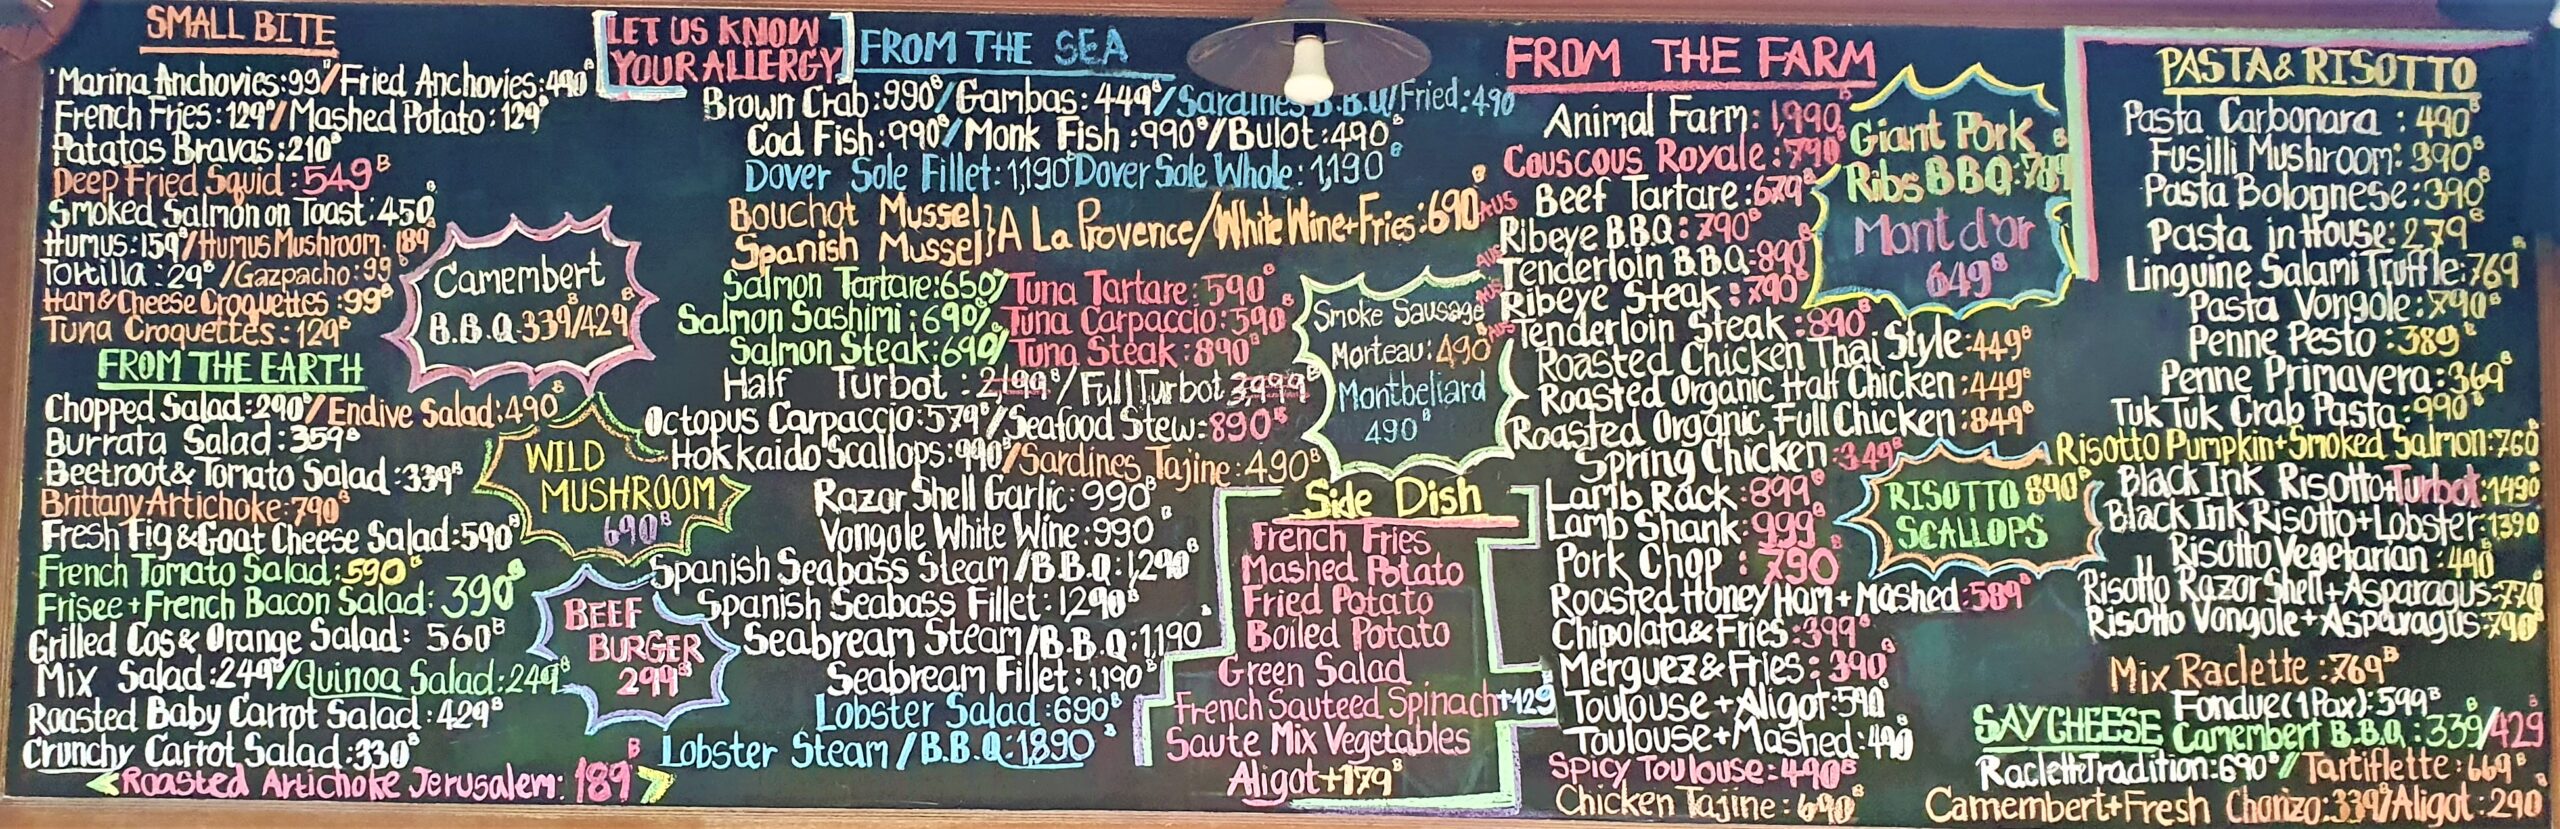 SMALL BITE
Marina Anchovies:99B/Fried Anchovies:490B
French Fries:129B/Mashed Potato:129B
Patatas Bravas:210B
Deep Fried Squid:549B
Smoked Salmon on Toast:450B
Humus:159B/Humus Mushroom:189
Tortilla:29B/Gazpacho:99B
Ham&Cheese Croquettes:99B
Tuna Croquettes:129B
Camembert
B.B.Q:339B/429B
FROM THE EARTH
Chopped Salad:290B/Endive Salad:490B
Burrata Salad:359B
Beetroot&Tomato Salad:339B
Brittany Artichoke:790B
Fresh Fig&Goat Cheese Salad:590B
French Tomato Salad:590B
Frisee+French Bacon Salad:390B
Grilled Cos&Orange Salad:560B
Mix Salad:249B/Quinoa Salad:249B
Roasted Baby Carrot Salad:429B
Crunchy Carrot Salad:330B
Roasted Artichoke Jerusalem:189B
WILD
MUSHROOM
690B
BEEF
BURGER
299B
LET US KNOW
YOUR ALLERGY
FROM THE SEA
Brown Crab:990B/Gambas:449B/Sardines B.B.Q/Fried:490
Cod Fish:990B/Monk Fish:990B/Bulot:490B
Dover Sole Fillet:1,190B Dover Sole Whole:1,190B
Bouchot Mussel
Spanish Mussel} A La Provence/White Wine+Fries:690B
Salmon Tartare:650/Tuna Tartare:590B
Salmon Sashimi:690/Tuna Carpaccio:590B
Salmon Steak:690/Tuna Steak:890B
Half Turbot:2199B/Full Turbot 3999B
Octopus Carpaccio:579B/Seafood Stew:890B
Hokkaido Scallops:990B/Sardines Tajine:490B
Razor Shell Garlic:990B
Vongole White Wine:990B
Spanish Seabass Steam/B.B.Q:1,290B
Spanish Seabass Fillet:1290B
Seabream Steam/B.B.Q:1,190B
Seabream Fillet:1,190B
Lobster Salad:690B
Lobster Steam/B.B.Q:1,890B
Smoke Sausage
Morteau:490B
Montbeliard
490B
Side Dish
French Fries
Mashed Potato
Fried Potato
Boiled Potato
Green Salad
French Sauteed Spinach+129B
Saute Mix Vegetables
Aligot+179B
FROM THE FARM
Animal Farm:1,990B
Couscous Royale:790B
Beef Tartare:679B
AUS Ribeye B.B.Q:790B
AUS Tenderloin B.B.Q:890B
AUS Ribeye Steak:790B
AUS Tenderloin Steak:890B
Roasted Chicken Thai Style:449B
Roasted Organic Half Chicken:449B
Roasted Organic Full Chicken:849B
Spring Chicken:349B
Lamb Rack:899B
Lamb Shank:999B
Pork Chop:790B
Roasted Honey Ham+Mashed:589B
Chipolata&Fries:399B
Merguez&Fries:390B
Toulouse+Aligot:590B
Toulouse+Mashed:490B
Spicy Toulouse:490B
Chicken Tajine:690B
Giant Pork
Ribs BBQ:789B
Mont d'or
649B
RISOTTO 890B
SCALLOPS
PASTA&RISOTTO
Pasta Carbonara:490B
Fusilli Mushroom:390B
Pasta Bolognese:390B
Pasta in House:279B
Linguine Salami Truffle:769B
Pasta Vongole:790B
Penne Pesto:389B
Penne Primavera:369B
Tuk Tuk Crab Pasta:990B
Risotto Pumpkin+Smoked Salmon:760B
Black Ink Risotto+Turbot:1490B
Black Ink Risotto+Lobster:1390B
Risotto Vegetarian:490B
Risotto Razor Shell+Asparagus:770B
Risotto Vongole+Asparagus:790B
Mix Raclette:769B
Fondue(1Pax):599B
SAY CHEESE Camembert B.B.Q:339/429B
Raclette Tradition:690B/Tartiflette:669B
Camembert+Fresh Chorizo:339B/Aligot:290B